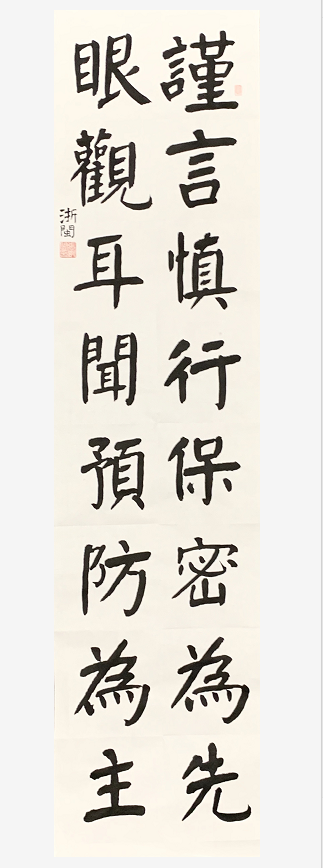 謹言慎行保密為先
眼觀耳聞預防為主
浙閩